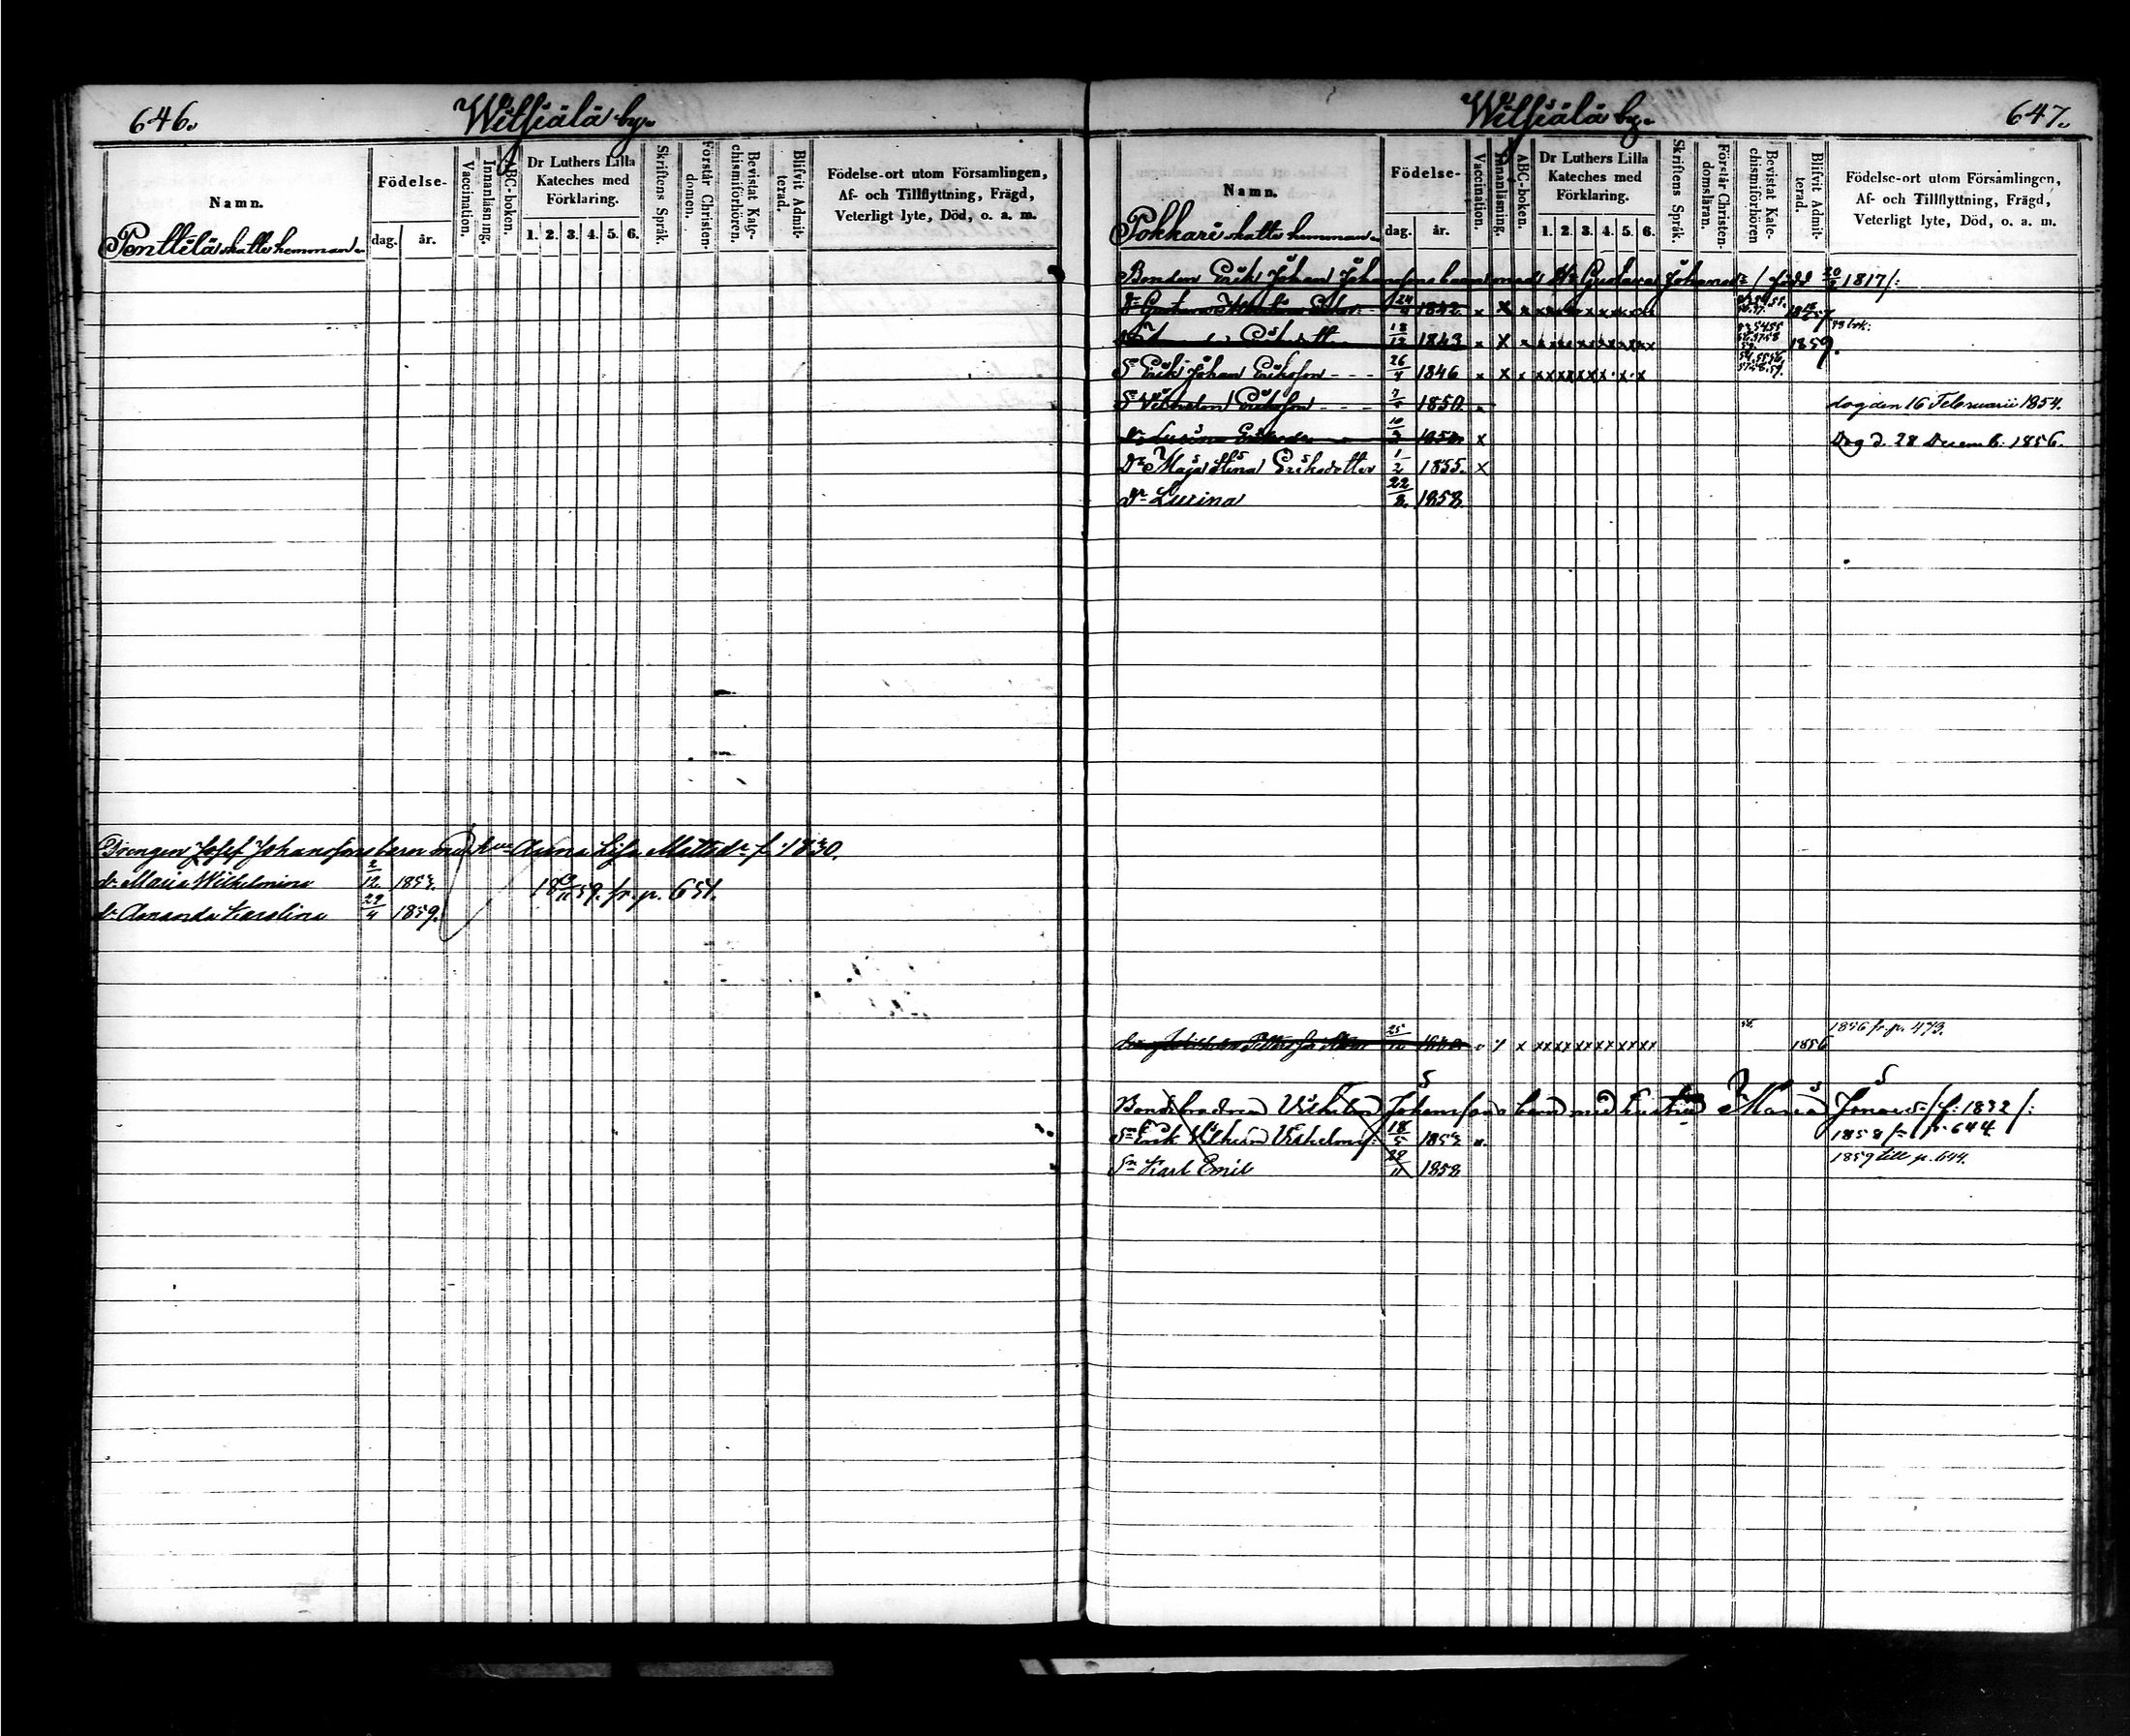 646.
Witsiälä by.
Namn.
Födelse-
dag.
år.
Vaccination.
Innanläsning.
ABC-boken.
Dr Luthers Lilla
Kateches med
Förklaring.
1. 2. 3. 4. 5. 6.
Skriftens Språk.
Förstår Christen-
domen.
Bevistat Kate-
chismiförhören.
Blifvit Admit-
terad.
Födelse-ort utom Församlingen,
Af- och Tillflyttning, Frägd,
Veterligt lyte, Död, o. a. m.
Penttilä skatte hemman
Drengen Josef Johanssons barn med hu Anna Lisa Mattsdr f. 1830.
dr Maria Wilhelmina 2/12 185
dr Amanda Karolina 29/4 1859.
fr. p. 651.
647.
Witsiälä by.
Namn.
Födelse-
dag.
år.
Vaccination.
Innanläsning.
ABC-boken.
Dr Luthers Lilla
Kateches med
Förklaring.
1. 2. 3. 4. 5. 6.
Skriftens Språk.
Förstår Christen-
domsläran.
Bevistat Kate-
chismiförhören
Blifvit Admit-
terad.
Födelse-ort utom Församlingen,
Af- och Tillflyttning, Frägd,
Veterligt lyte, Död, o. a. m.
Pokkari skatte hemman
Bonden Erik Johan Johanssons barn med H. Gustava Johansdr /: född 20 1817 /:
1842 x x x x x x x x x
18/12 1843 x x x x x x x x x 1859.
Sn Erik Johan Eriksson - - - 26/4 1846 x x x x x x x x x
Sn Vilhelm Eriksson - - - 1850. dog den 16 Februarii 1854.
dr Lusina Eriksdr x Dog d. 28 Decemb. 1856.
Dr Maja Stina Eriksdotter 1/2 1855. x
dr Lusina 22/8. 1858
1856 fr. p. 473.
x x x x x x x x x 1856
Bondebrodren Vilhelm Johanssons barn med hustru Maria Jonasdr /: f: 1832 /:
Sn Erik Vilhelm Vilhelmsf: 18/5 185 1858 fr. p. 644
Sn Karl Emil 28/11 1858 1859 till p. 644.